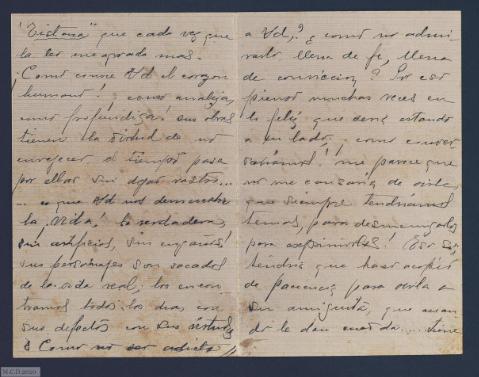 "Victoria" que cada vez que
la leo me agrada mas.
¡Como conoce Vd el corazon
humano! ¡como analiza,
como profundiza! sus obras
tienen la virtud de no
envejecer, el tiempo pasa
por ellas sin dejar rastro...
es que Vd nos demuestra
la Vida! la verdadera,
sin artificios, sin engaños!
sus personajes son sacados
de la vida real, los encon
tramos todos los dias con
sus defectos con sus virtudes
¿Como no ser adicta
a Vd,? ¿como no admi-
rarlo llena de fe, llena
de conviccion? Por eso
pienso muchas veces en
lo feliz que seria estando
a su lado, como conver
sariamos! me parece que
no me cansaria de oirle,
que siempre tendriamos
temas, para desmenuzarlos
para exprimirlos! Por su
tendria que hacer acopio
de paciencia para oirla a
su amiguita, que cuan
do le dan cuerda... tiene
M.C.D 2020